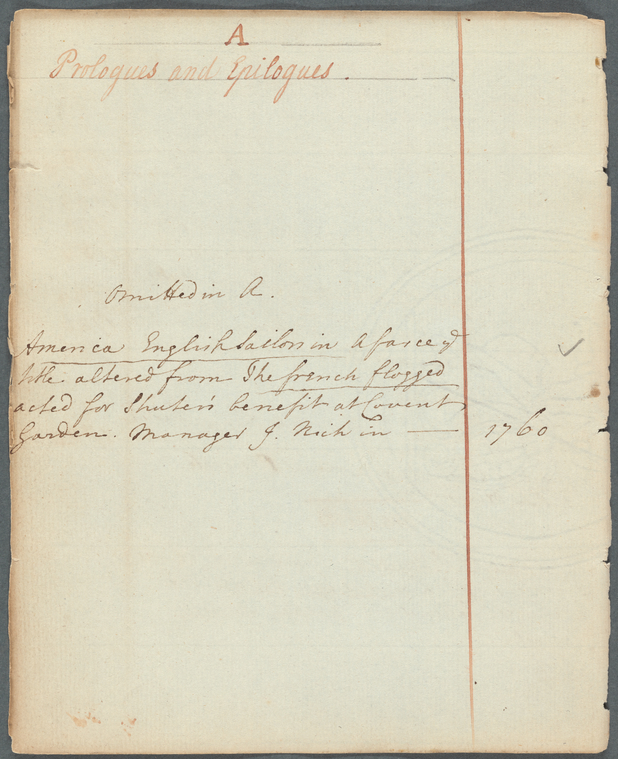 A
Prologues and Epilogues.
Omitted in A.
America English Sailors in A farce ye
title altered from The french flogged
acted for Shuter's benefit at Covent
Garden. Manager J. Rich in — 1760